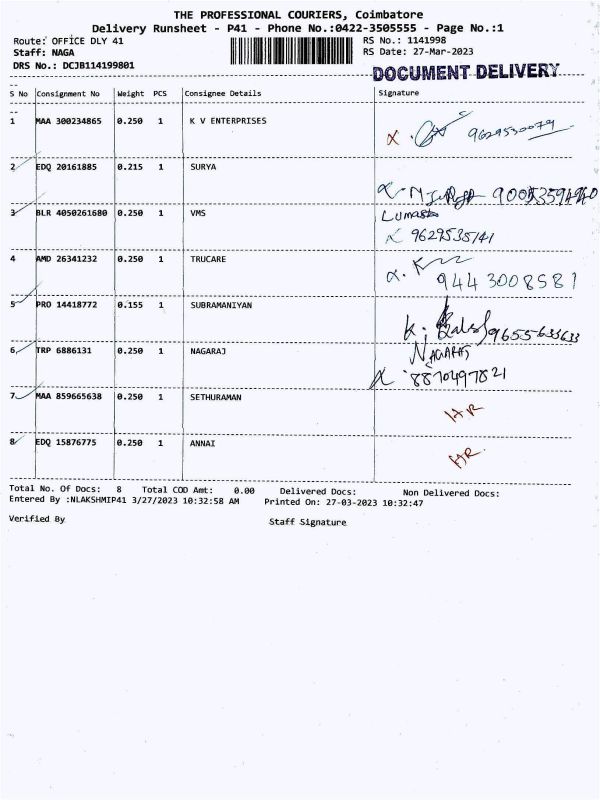 THE PROFESSIONAL COURIERS, Coimbatore
Delivery Runsheet - P41 - Phone No.:0422-3505555 - Page No.:1
Route: OFFICE DLY 41 RS No.: 1141998
Staff: NAGA RS Date: 27-Mar-2023
DRS No.: DCJB114199801
DOCUMENT DELIVERY
S No Consignment No Weight PCS Consignee Details Signature
1 MAA 300234865 0.250 1 K V ENTERPRISES
9629530079
2 EDQ 20161885 0.215 1 SURYA
3 BLR 4050261680 0.250 1 VMS
9629535141
4 AMD 26341232 0.250 1 TRUCARE
9443008581
5 PRO 14418772 0.155 1 SUBRAMANIYAN
K. 9655633633
6 TRP 6886131 0.250 1 NAGARAJ
NAGARAJ
8870497821
7 MAA 859665638 0.250 1 SETHURAMAN HR
8 EDQ 15876775 0.250 1 ANNAI HR
Total No. Of Docs: 8 Total COD Amt: 0.00 Delivered Docs: Non Delivered Docs:
Entered By :NLAKSHMIP41 3/27/2023 10:32:58 AM Printed On: 27-03-2023 10:32:47
Verified By Staff Signature